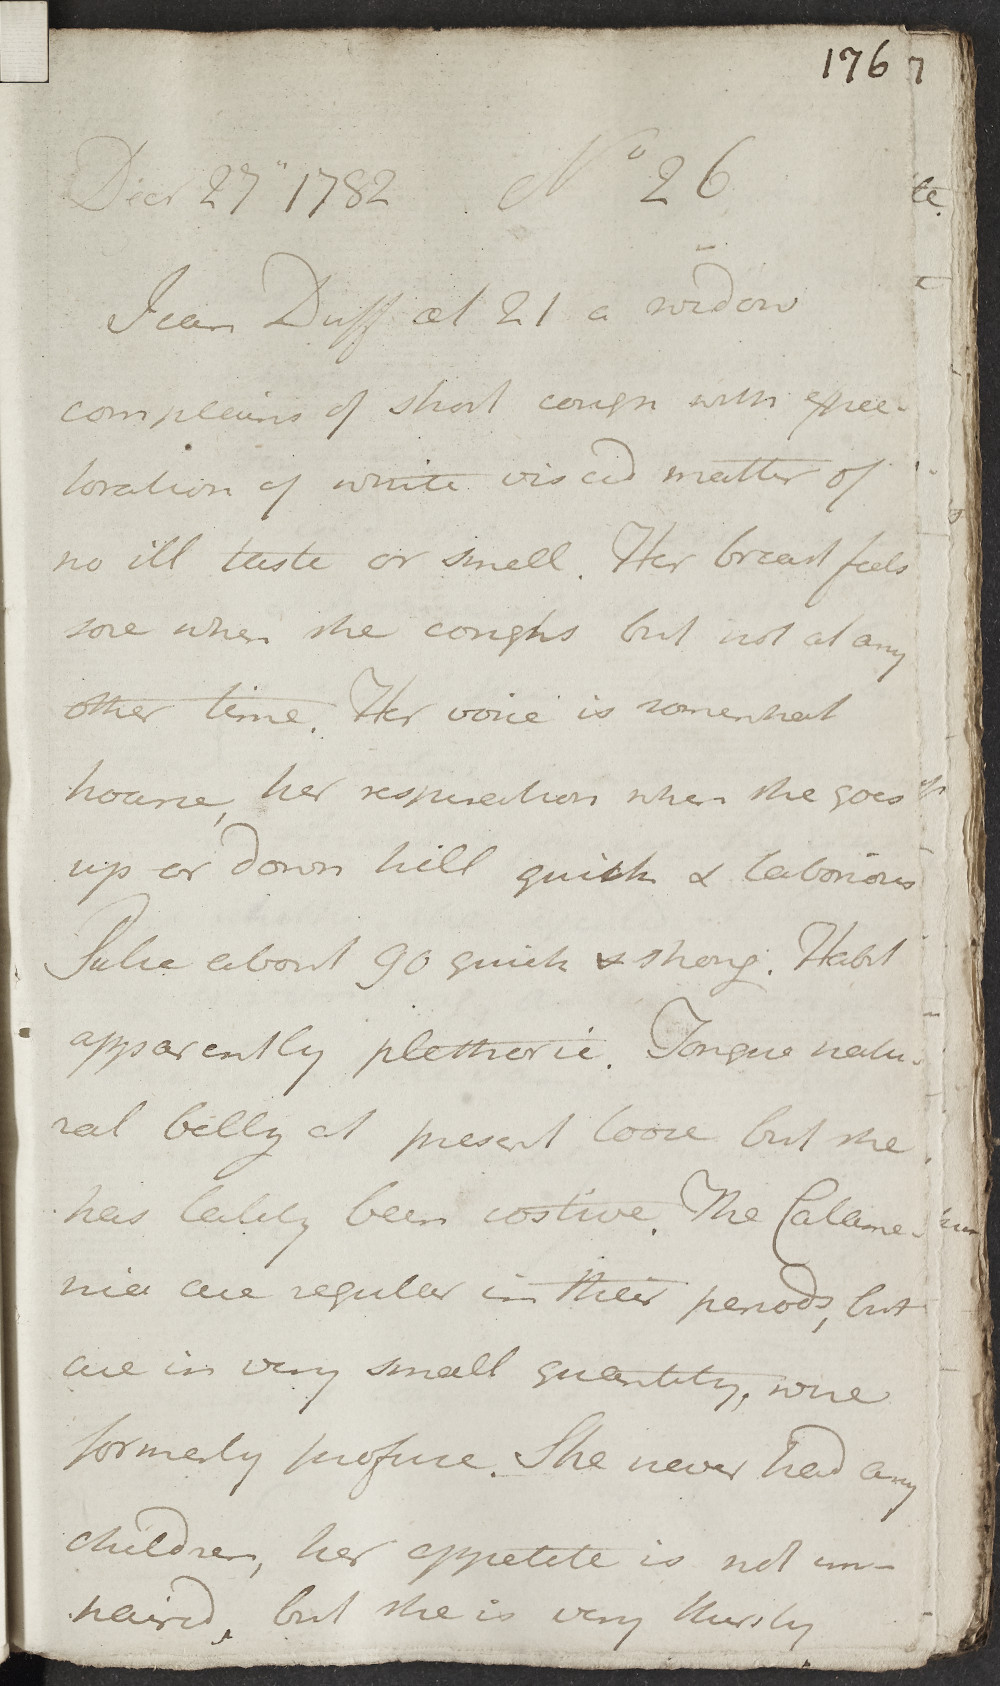 176 7
Decr 27" 1782 No 26
te.
Jean Duff æt 21 a widow
complains of short cough with expec-
toration of white viscid matter of
no ill taste or smell. Her breast feels
sore when she coughs but not at any
other time. Her voice is somewhat
hoarse, her respiration when she goes
up or down hill quick & laborious
Pulse about 90 quick & strong. Habit
apparently plethoric. Tongue natu-
ral belly at present loose but she
has lately been costive. The Catame-
nia are regular in their periods, but
are in very small quantity, were
formerly profuse. She never had any
children, her appetite is not im-
paired, but she is very thirsty